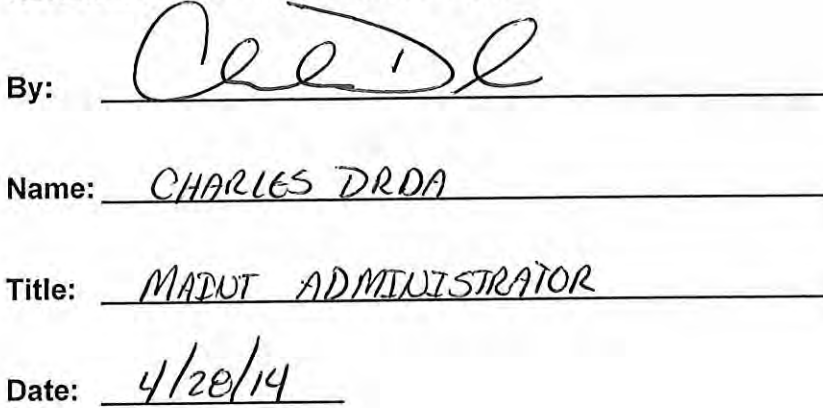 By:
Name: CHARLES DRDA
Title: MAINT ADMINISTRATOR
Date: 4/28/14